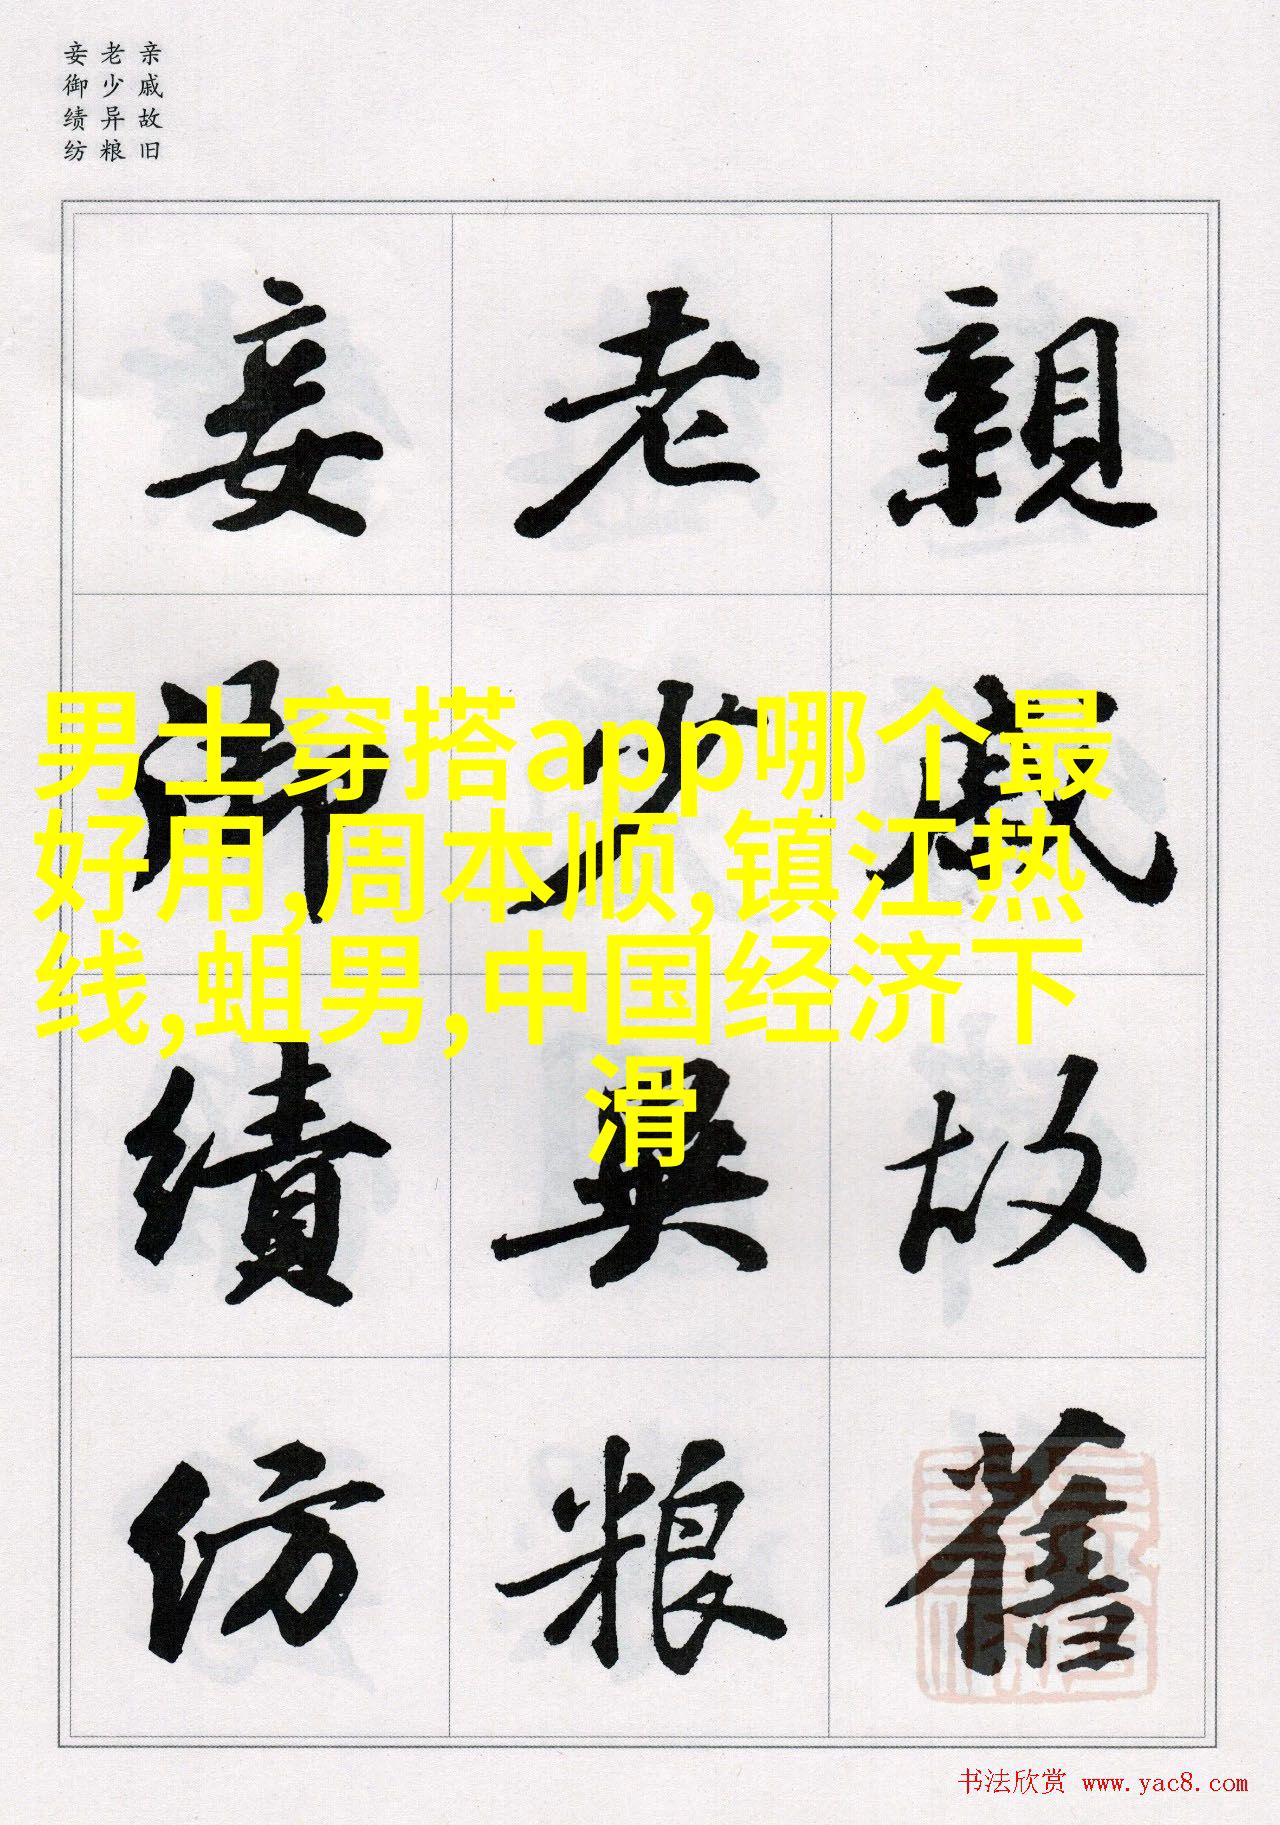 亲戚故旧
老少异粮
妾御绩纺
親戚故舊
老少異粮
妾御績紡
男士穿搭app哪个最
好用,周本顺,镇江热
线,蛆男,中国经济下
滑
书法欣赏 www.yac8.com